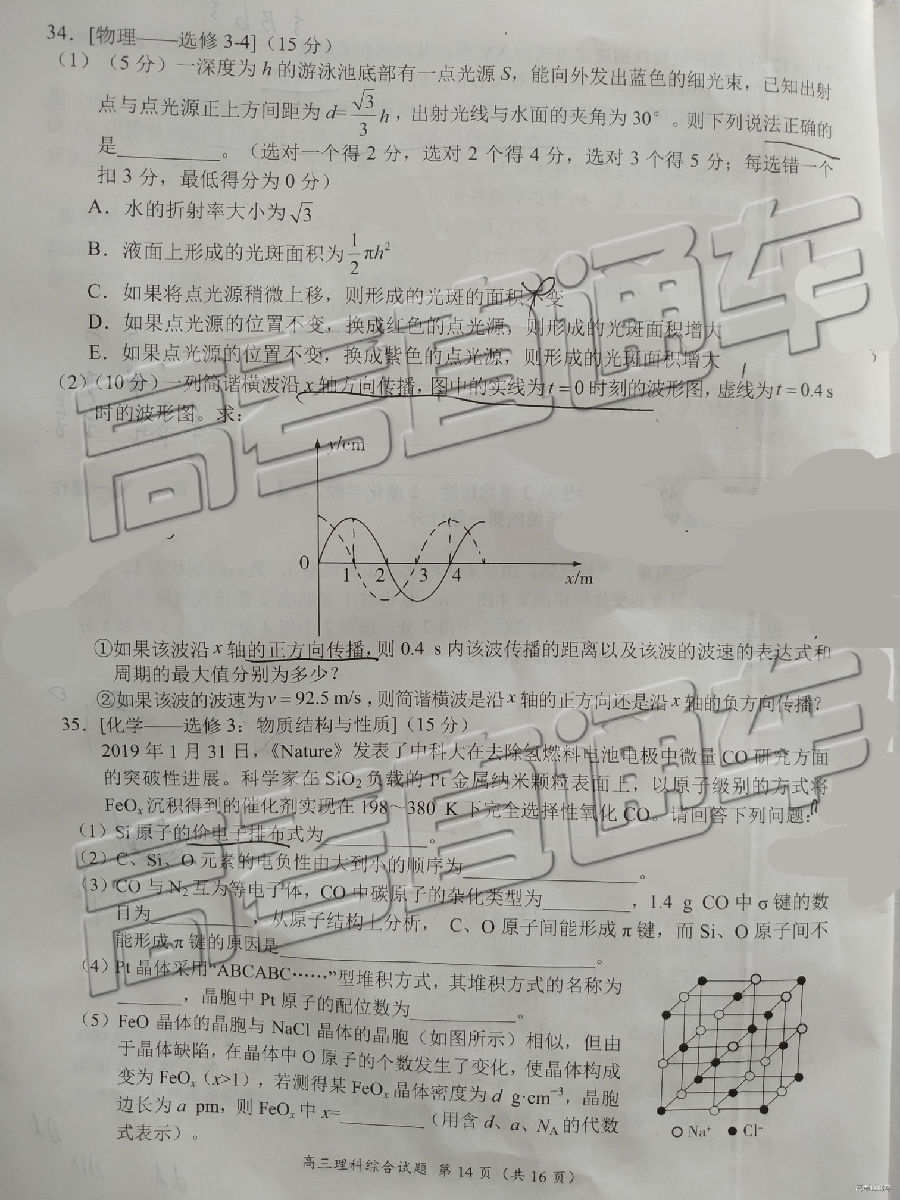 34．[物理——选修3-4]（15 分）
（1）（5 分）一深度为 h 的游泳池底部有一点光源 S，能向外发出蓝色的细光束，已知出射
点与点光源正上方间距为 d=√3/3 h，出射光线与水面的夹角为 30°。则下列说法正确的
是________。（选对一个得 2 分，选对 2 个得 4 分，选对 3 个得 5 分；每选错一个
扣 3 分，最低得分为 0 分）
A．水的折射率大小为√3
B．液面上形成的光斑面积为1/2 πh²
C．如果将点光源稍微上移，则形成的光斑的面积不变
D．如果点光源的位置不变，换成红色的点光源，则形成的光斑面积增大
E．如果点光源的位置不变，换成紫色的点光源，则形成的光斑面积增大
（2）（10 分）一列简谐横波沿 x 轴方向传播，图中的实线为 t = 0 时刻的波形图，虚线为 t = 0.4 s
时的波形图。求：
y/cm
0 1 2 3 4 x/m
①如果该波沿 x 轴的正方向传播，则 0.4 s 内该波传播的距离以及该波的波速的表达式和
周期的最大值分别为多少？
②如果该波的波速为 v = 92.5 m/s，则简谐横波是沿 x 轴的正方向还是沿 x 轴的负方向传播？
35．[化学——选修 3：物质结构与性质]（15 分）
2019 年 1 月 31 日，《Nature》发表了中科大在去除氢燃料电池电极中微量 CO 研究方面
的突破性进展。科学家在 SiO₂ 负载的 Pt 金属纳米颗粒表面上，以原子级别的方式将
FeOₓ 沉积得到的催化剂实现在 198～380 K 下完全选择性氧化 CO。请回答下列问题：
（1）Si 原子的价电子排布式为________。
（2）C、Si、O 元素的电负性由大到小的顺序为________________。
（3）CO 与 N₂ 互为等电子体，CO 中碳原子的杂化类型为________，1.4 g CO 中 σ 键的数
目为________，从原子结构上分析，C、O 原子间能形成 π 键，而 Si、O 原子间不
能形成 π 键的原因是________________________。
（4）Pt 晶体采用“ABCABC……”型堆积方式，其堆积方式的名称为
______，晶胞中 Pt 原子的配位数为________。
（5）FeO 晶体的晶胞与 NaCl 晶体的晶胞（如图所示）相似，但由
于晶体缺陷，在晶体中 O 原子的个数发生了变化，使晶体构成
变为 FeOₓ（x>1），若测得某 FeOₓ 晶体密度为 d g·cm⁻³，晶胞
边长为 a pm，则 FeOₓ 中 x=________（用含 d、a、N_A 的代数
式表示）。
Na⁺ Cl⁻
高三理科综合试题 第 14 页（共 16 页）
高考直通车
高考直通车